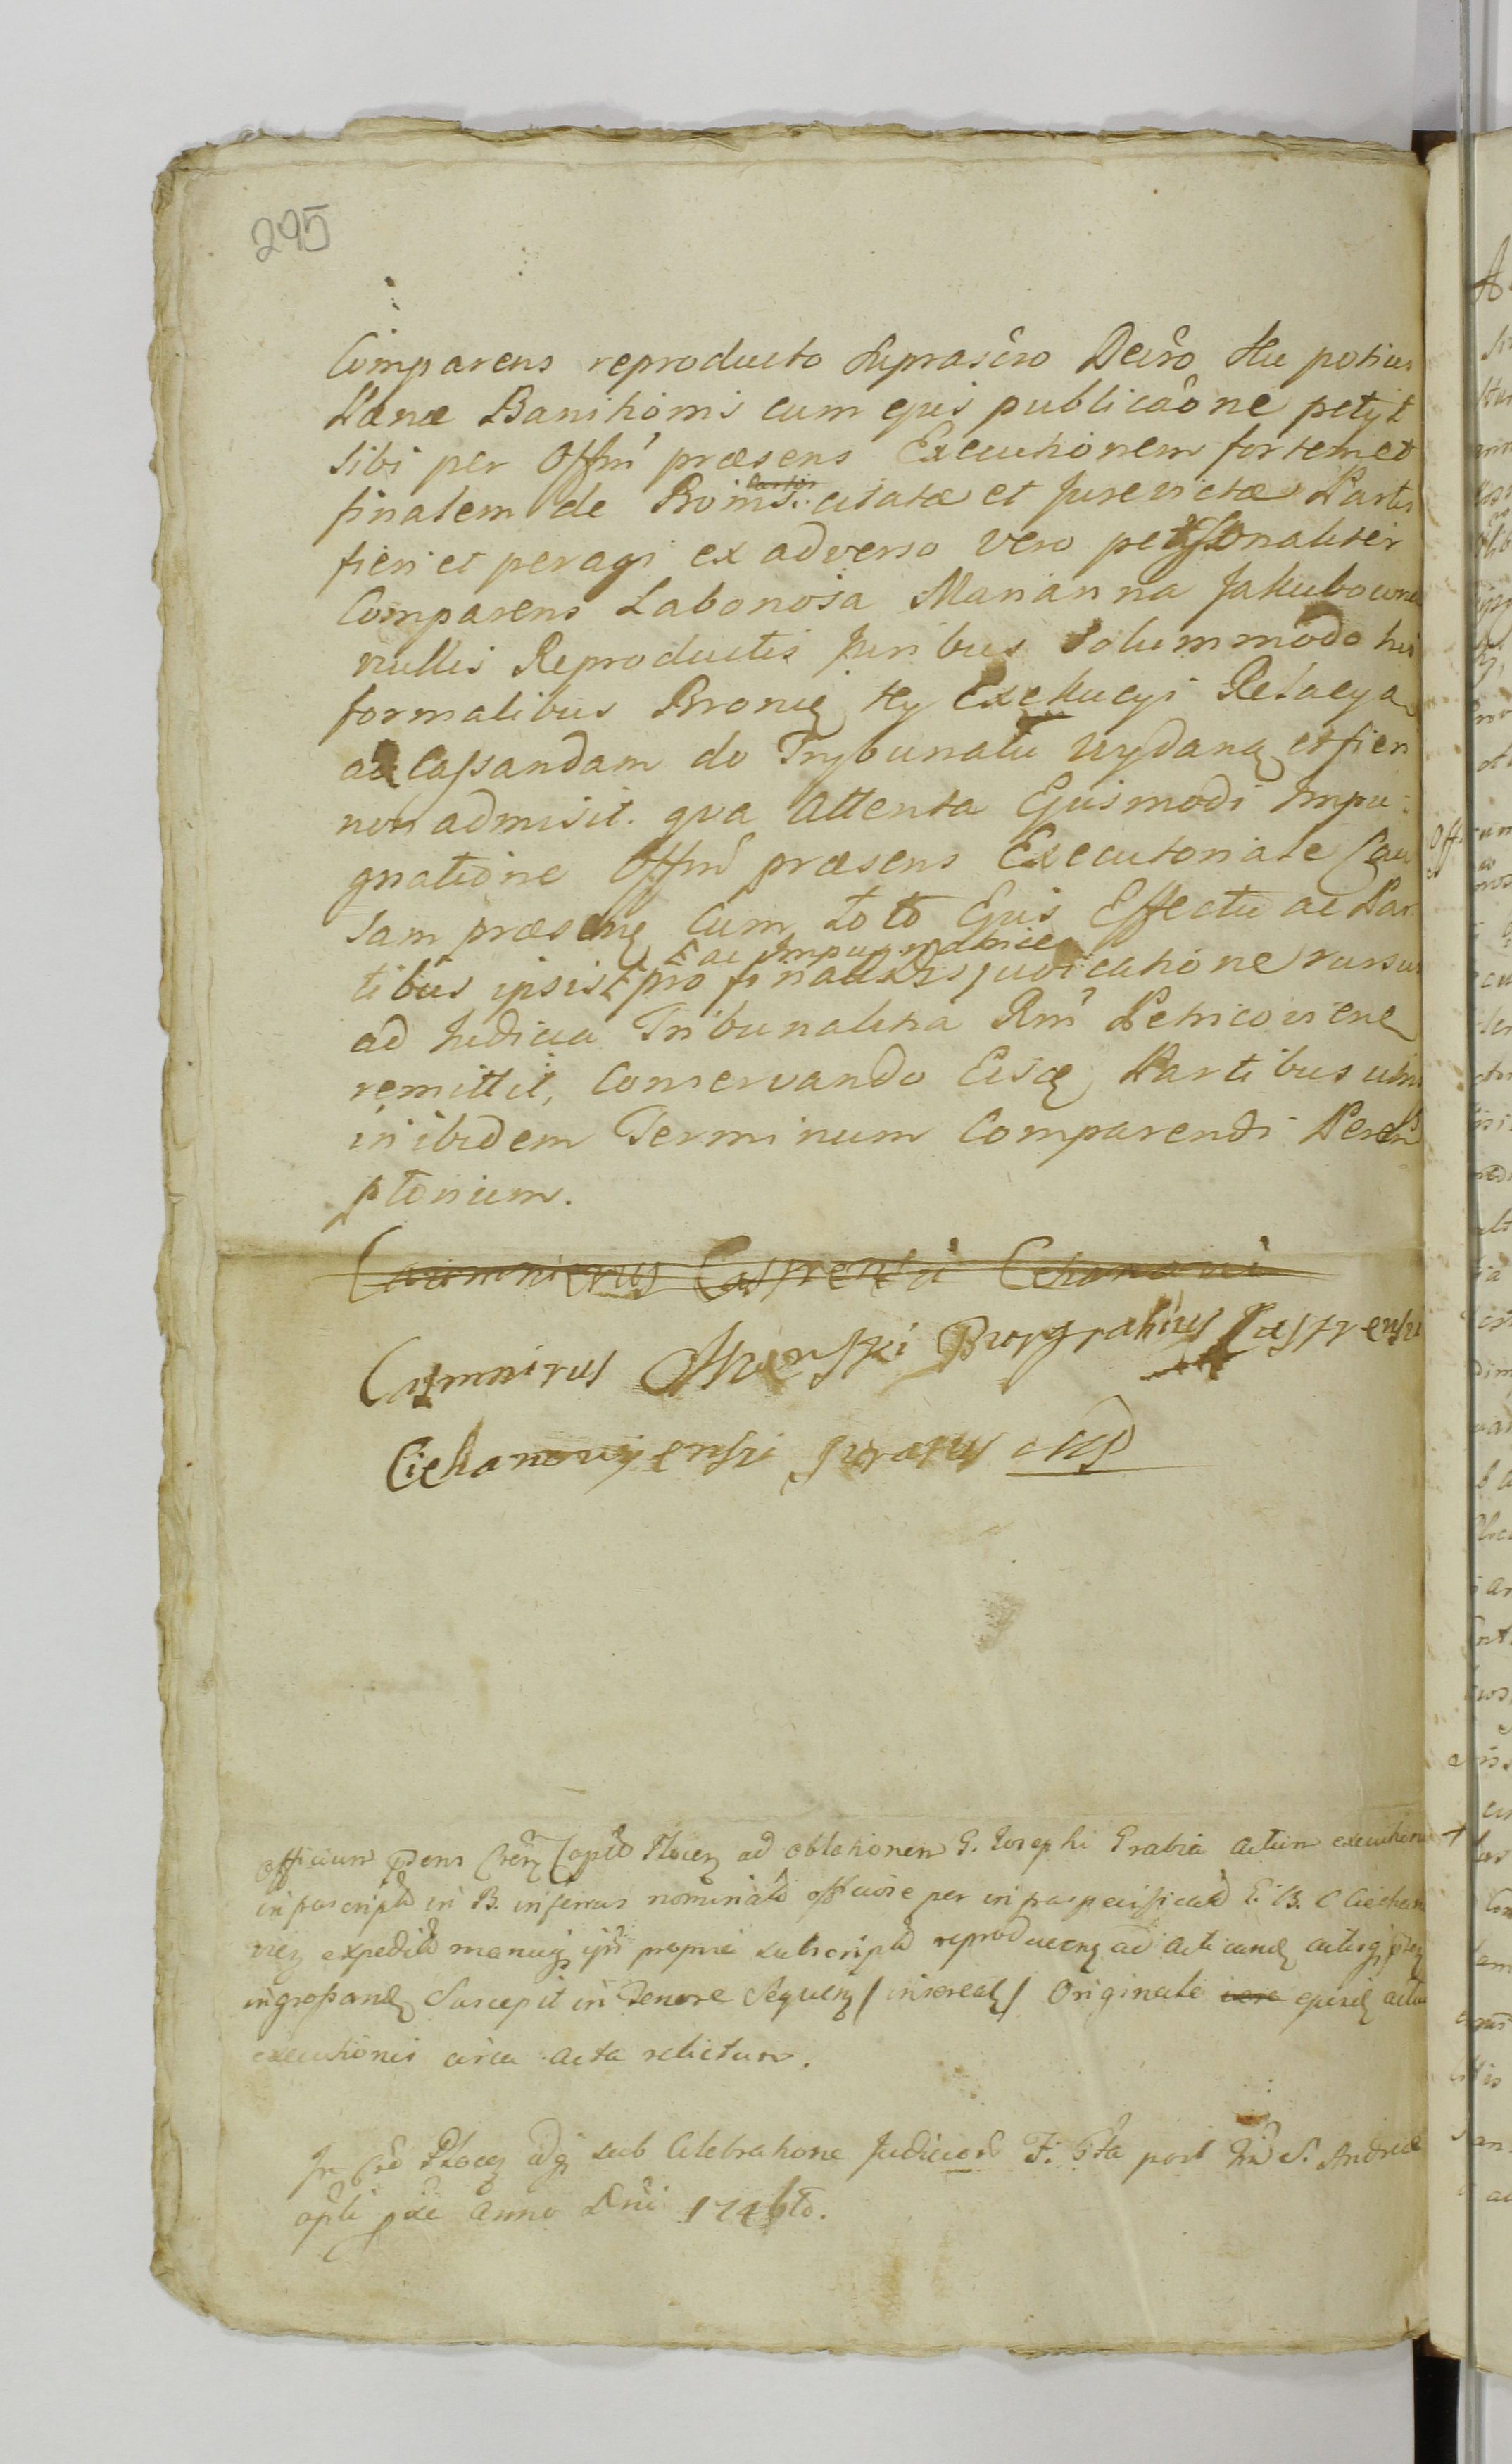 295
Comparens reproducto suprascro Decro seu potius
Pænæ Banitionis cum ejus publicaone petyt
sibi per Offm præsens Executionem fortem et
finalem de Bonis Partis citatæ et jurevictæ Partis
fieri et peragi ex adverso vero personaliter
Comparens Laboriosa Marianna Jakubowna
nullis Reproductis Juribus solummodo his
formalibus Bronię tey Exekucyi Relacyą
ad Cassandam do Trybunału wydaną et fieri
non admisit. qva attenta Ejusmodi Impu-
gnatione Offm præsens Executoriale Cau
sam præsenę cum toto Ejus Effectu ac Par
tibus ipsis ac Impugnatrice pro finali Disjudicatione rursus
ad Judicia Tribunalitia Rni Petricoviene
remittit, Conservando Eisdę Partibus
inibidem Terminum Comparendi Perem
ptorium.
Casimirus Castrensi Ciechanovi
Casimirus Burgrabius Castrensis
Ciechanoviensis Juratus mp
Officium Pens Cren Capte Plocen ad oblationem G. Josephi Grabia actum executionis
infrascriptū in B. inferius nominatis officiose per infraspecificatū B. C Ciechano
vien expeditū manuq ipsi propria subscriptū reproducenę ad acticandę actisq
ingrossandę Suscepit in Tenore Sequenę / inseratę / Originale vero ejusdę actus
executionis circa acta relictum.
In Cro Plocen adq sub Celebratione Judiciorū F. 5ta post Fm S. Andreæ
apli pxi anno Dni 1746to.